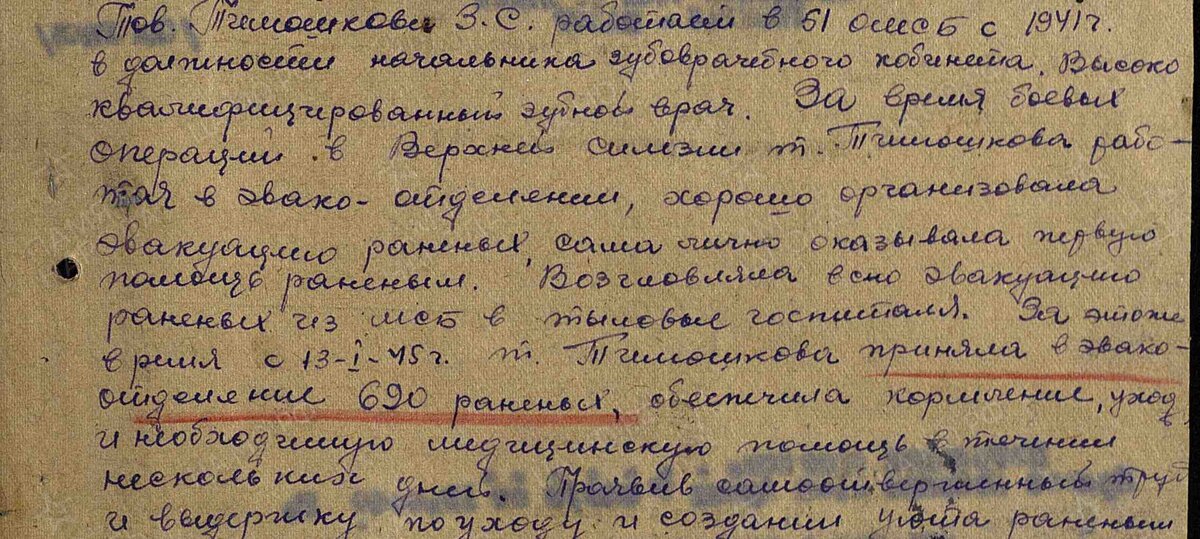 Тов. Тимошкова З.С. работает в 61 омсб с 1941г.
в должности начальника зубоврачебного кабинета. Высоко
квалифицированный зубной врач. За время боевых
операций в Верхней Силезии т. Тимошкова рабо-
тая в эвако- отделении, хорошо организовала
эвакуацию раненых, сама лично оказывала первую
помощь раненым. Возглавляла всю эвакуацию
раненых из мсб в тыловые госпиталя. За этоже
время с 13-I-45г. т. Тимошкова приняла в эвако-
отделение 690 раненых, обеспечила кормление, уход
и необходимую медицинскую помощь в течении
нескольких дней. Проявив самоотверженный труд
и выдержку по уходу и создании уюта раненым